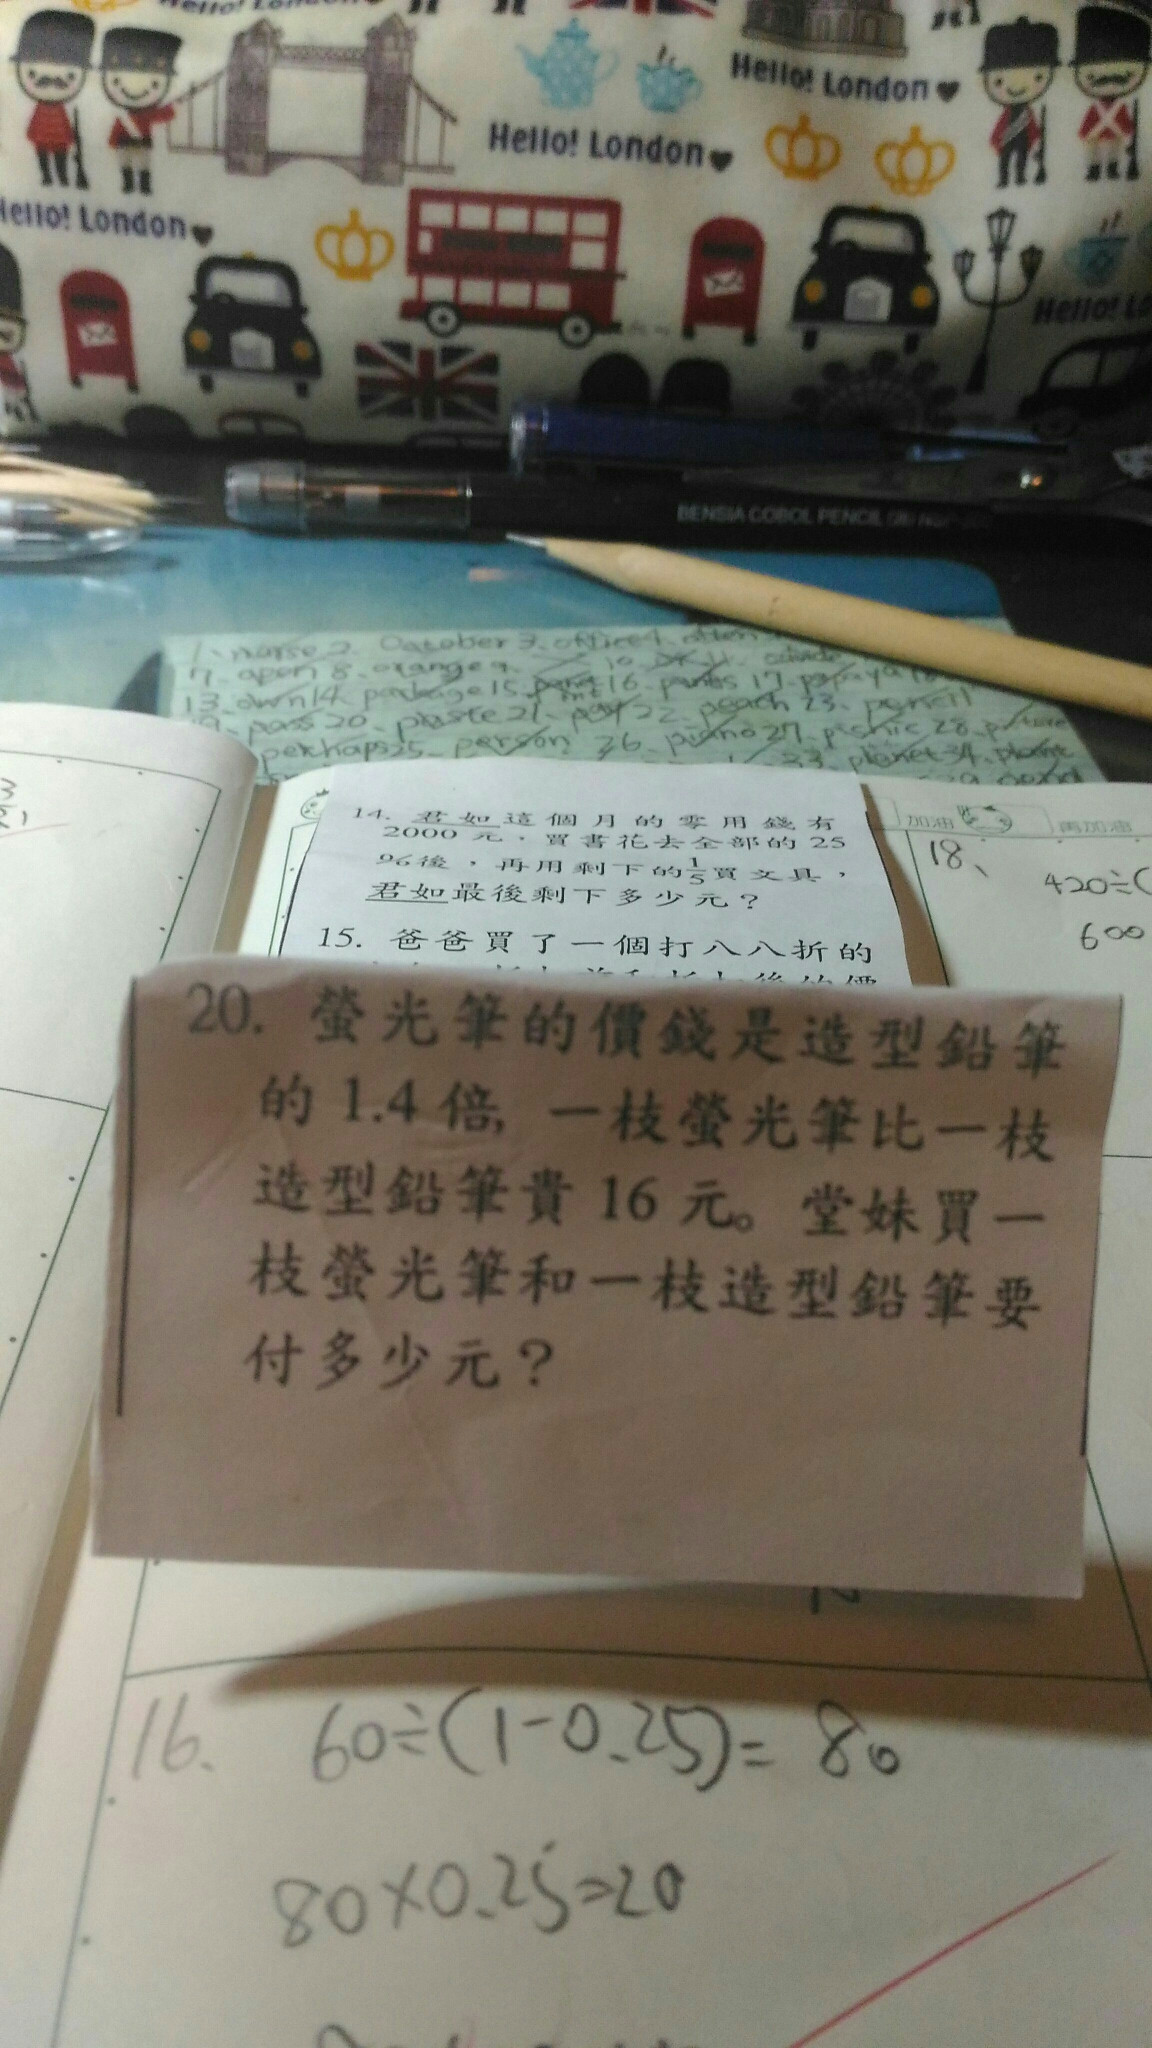 Hello! London
Hello! London
Hello! London
Hello! London
Hello! Lo
BENSIA COBOL PENCIL
1. nurse 2. October 3. office 4.
7. open 8. orange 9. 10. 11.
13. own 14. package 15. 16. pants 17. papaya
pass 20. paste 21. pay 22. peach 23. pencil
perhaps 25. person 26. piano 27. picnic 28. picture
33. planet 34.
14. 君如這個月的零用錢有
2000元,買書花去全部的25
%後,再用剩下的1/5買文具,
君如最後剩下多少元?
15. 爸爸買了一個打八八折的
加油
再加油
18、
420÷(
600
20. 螢光筆的價錢是造型鉛筆
的1.4倍,一枝螢光筆比一枝
造型鉛筆貴16元。堂妹買一
枝螢光筆和一枝造型鉛筆要
付多少元?
16. 60÷(1-0.25)=80
80×0.25=20